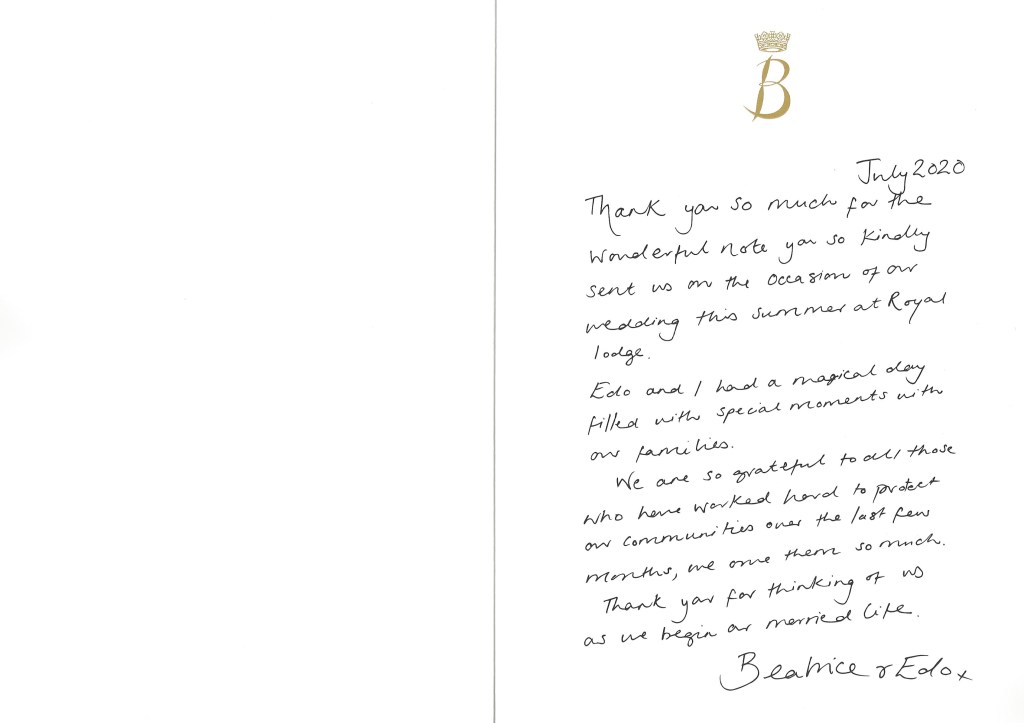 B
July 2020
Thank you so much for the
wonderful note you so kindly
sent us on the occasion of our
wedding this summer at Royal
lodge.
Edo and I had a magical day
filled with special moments with
our families.
We are so grateful to all those
who have worked hard to protect
our communities over the last few
months, we owe them so much.
Thank you for thinking of us
as we begin our married life.
Beatrice & Edo x